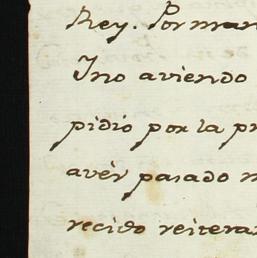 Rey. Por man
Ino aviendo
pidio por la pr
avér pasado n
recido reitera